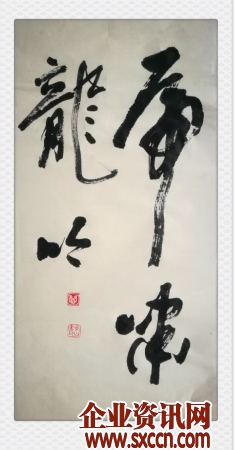 虎啸
龍吟
企业资讯网
www.sxccn.com